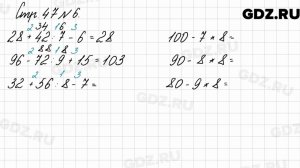 GDZ.RU
Стр. 47 № 6.
2 34 1 6 3
28 + 42 : 7 - 6 = 28
100 - 7 * 8 =
2 88 1 8 3
96 - 72 : 9 + 15 = 103
90 - 8 * 8 =
2 1 3
32 + 56 : 8 - 7 =
80 - 9 * 8 =
GDZ.RU